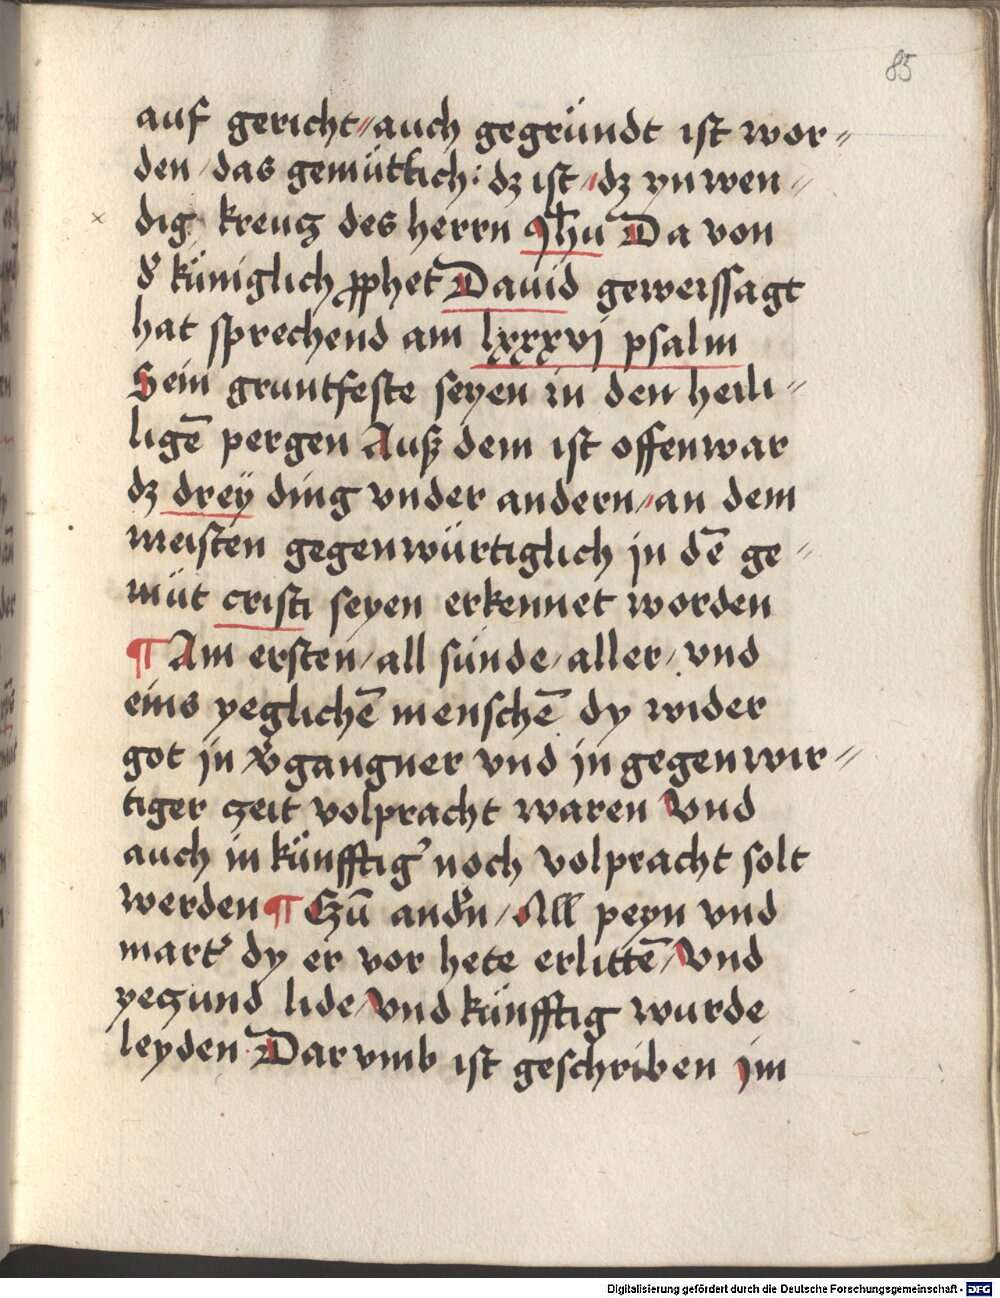 85
auf gericht // auch gegründt ist wor=
den / das gemütlich : dz ist / dz ynwen=
dig kreutz des herrn Jhũ Da von
d' küniglich ꝓphet Dauid geweissagt
hat sprechend am lxxxvj psalm
Sein gruntfeste seyen in den heili=
ligē pergen Auß dem ist offenwar
dz drey ding vnder andern / an dem
meisten gegenwürtiglich in dē ge=
müt cristi seyen erkennet worden
¶ Am ersten / all sünde / aller / vnd
eins yeglichē menschē dy wider
got in v'gangner vnd in gegenwir=
tiger zeit volpracht waren Vnd
auch in künfftig' noch volpracht solt
werden ¶ Zū and'n / All peyn vnd
mart' dy er vor hete erlittē / Vnd
yezund lide / Vnd künfftig wurde
leyden Dar vmb ist geschriben im
Digitalisierung gefördert durch die Deutsche Forschungsgemeinschaft - DFG